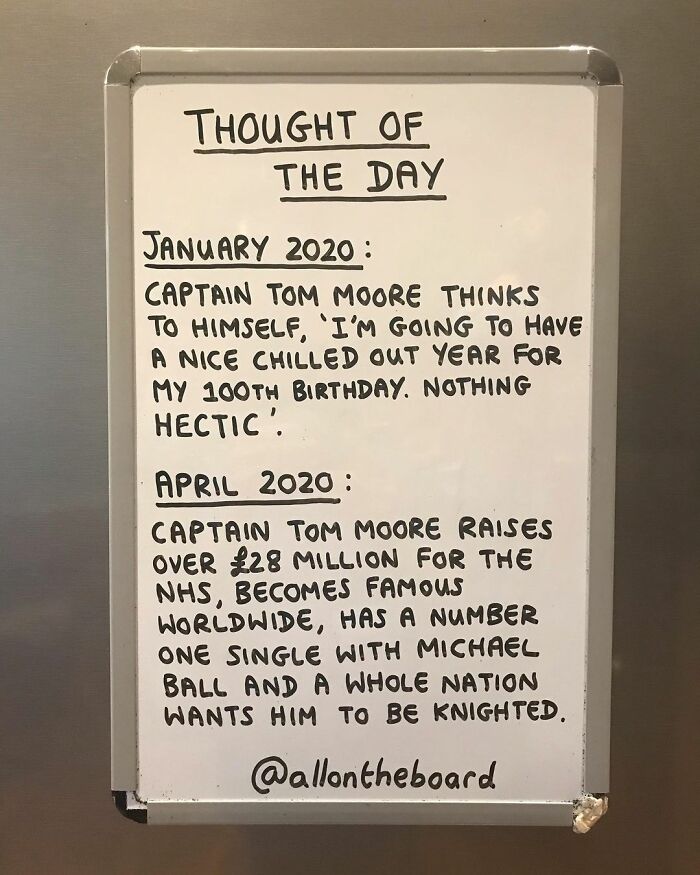 THOUGHT OF
THE DAY
JANUARY 2020:
CAPTAIN TOM MOORE THINKS
TO HIMSELF, 'I'M GOING TO HAVE
A NICE CHILLED OUT YEAR FOR
MY 100TH BIRTHDAY. NOTHING
HECTIC'.
APRIL 2020:
CAPTAIN TOM MOORE RAISES
OVER £28 MILLION FOR THE
NHS, BECOMES FAMOUS
WORLDWIDE, HAS A NUMBER
ONE SINGLE WITH MICHAEL
BALL AND A WHOLE NATION
WANTS HIM TO BE KNIGHTED.
@allontheboard